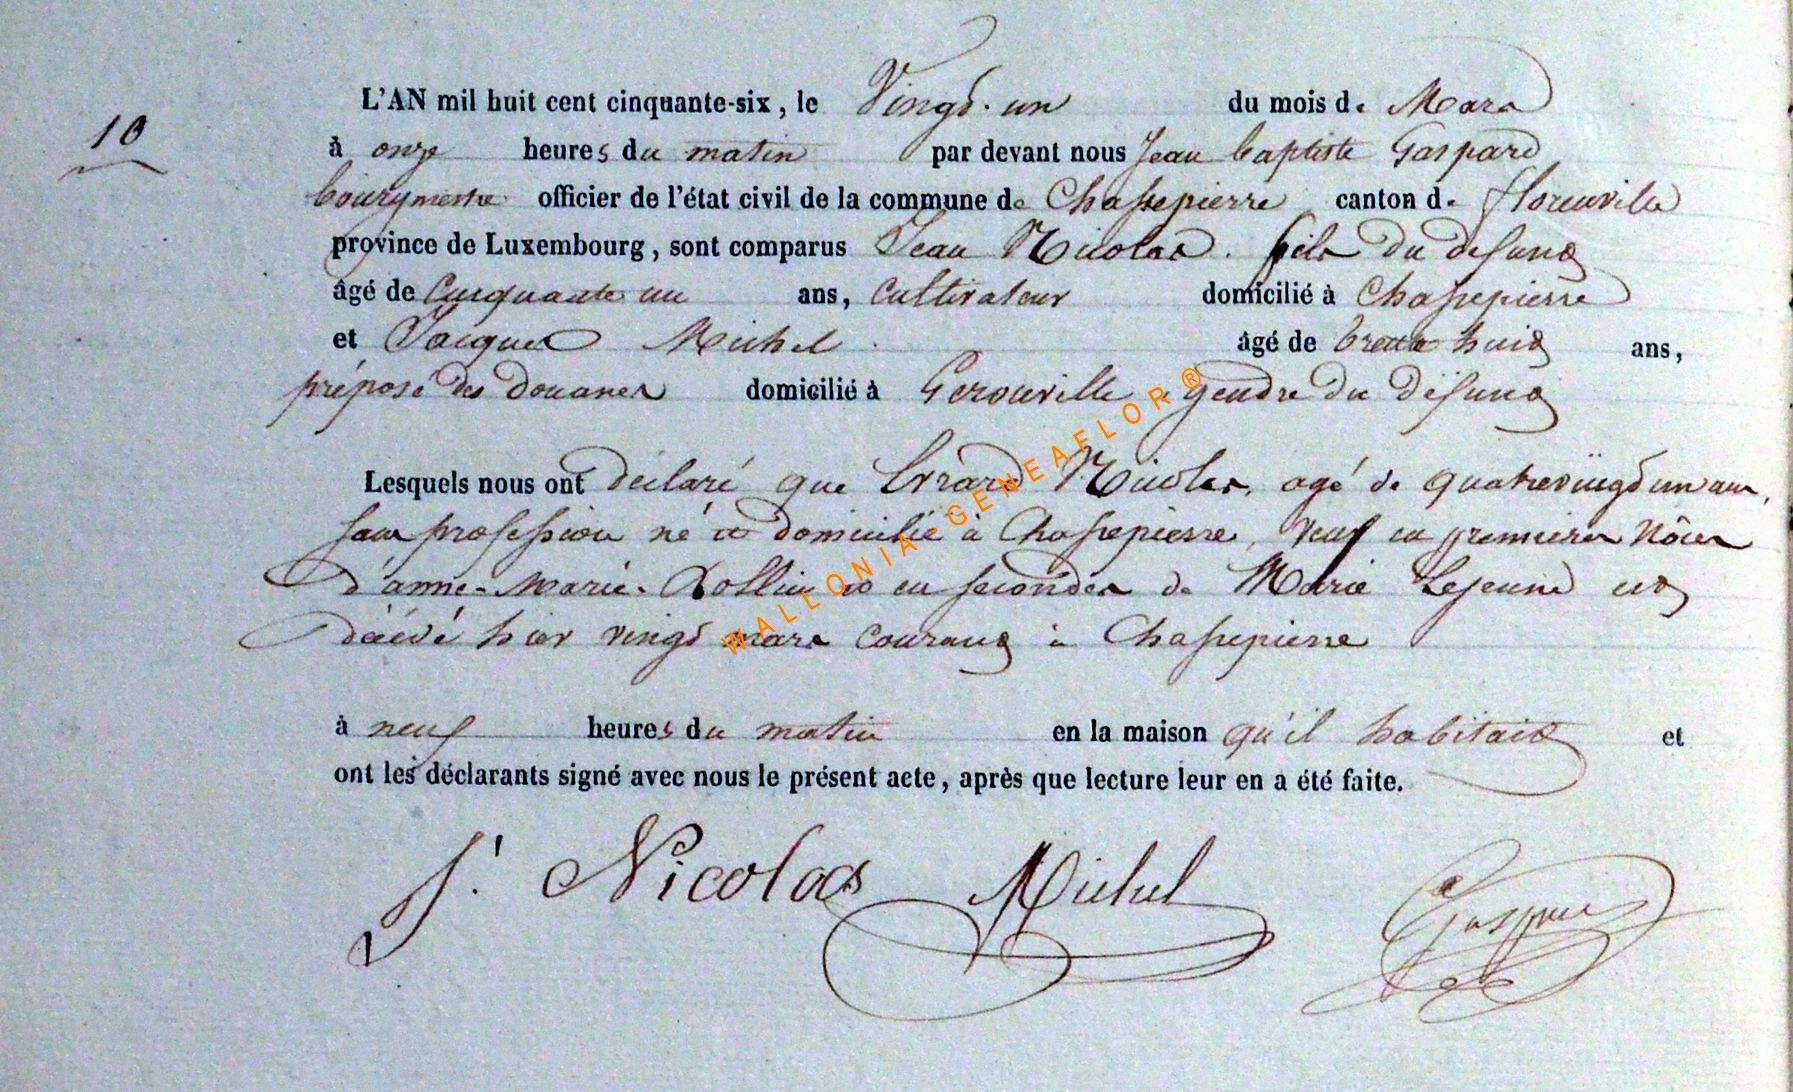 10
L'AN mil huit cent cinquante-six, le Vingt-un du mois de Mars
à onze heures du matin par devant nous Jean baptiste Gaspard
bourgmestre officier de l'état civil de la commune de Chassepierre canton de florenville
province de Luxembourg, sont comparus Jean Nicolas. fils du defunt
âgé de Cinquante un ans, Cultivateur domicilié à Chassepierre
et Jacques Michel. âgé de trente huit ans,
préposé des douanes domicilié à Gerouville, gendre du défunt
Lesquels nous ont déclaré que Nicolas, agé de quatrevingt un ans,
sans profession né et domicilié à Chassepierre, veuf en premieres Nôces
d'anne-Marie et en secondes de Marie Lejeune est
décédé hier vingt mars courant à Chassepierre
à neuf heures du matin en la maison qu'il habitait et
ont les déclarants signé avec nous le présent acte, après que lecture leur en a été faite.
J. Nicolas Michel Gaspard
WALLONIA GENEAFLOR ®